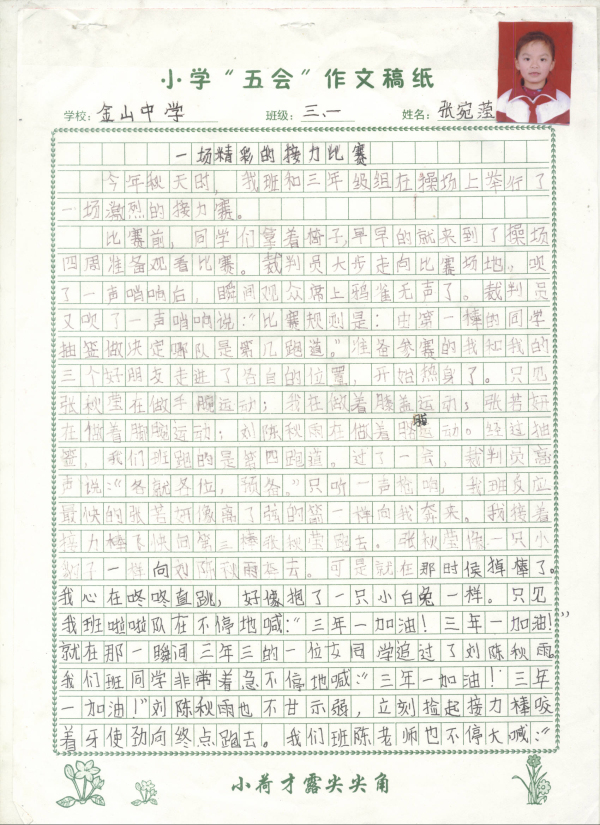 小学“五会”作文稿纸
学校：金山中学 班级：三、一 姓名：张宛莹
一场精彩的接力比赛
今年秋天时，我班和三年级组在操场上举行了
一场激烈的接力赛。
比赛前，同学们拿着椅子，早早的就来到了操场
四周准备观看比赛。裁判员大步走向比赛场地，吹
了一声哨响后，瞬间观众席上鸦雀无声了。裁判员
又吹了一声哨响说：“比赛规则是：由第一棒的同学
抽签做决定哪队是第几跑道。”准备参赛的我和我的
三个好朋友走进了各自的位置，开始热身了。只见
张秋莹在做手腕运动；我在做着膝盖运动；张若妍
在做着脚腕运动；刘陈秋雨在做着 运动。经过抽
签，我们班跑的是第四跑道。过了一会，裁判员高
声说：“各就各位，预备”只听一声枪响，我班反应
最快的张若妍像离了弦的箭一样向我奔来。我接着
接力棒飞快向第三棒张秋莹跑去。张秋莹像一只小
豹子一样向刘陈秋雨奔去。可是就在那时侯掉棒了。
我心在咚咚直跳，好像抱了一只小白兔一样。只见
我班啦啦队在不停地喊：“三年一加油！三年一加油！”
就在那一瞬间三年三的一位女同学追过了刘陈秋雨。
我们班同学非常着急不停地喊：“三年一加油！三年
一加油！”刘陈秋雨也不甘示弱，立刻捡起接力棒咬
着牙使劲向终点跑去。我们班陈老师也不停大喊：“
小荷才露尖尖角